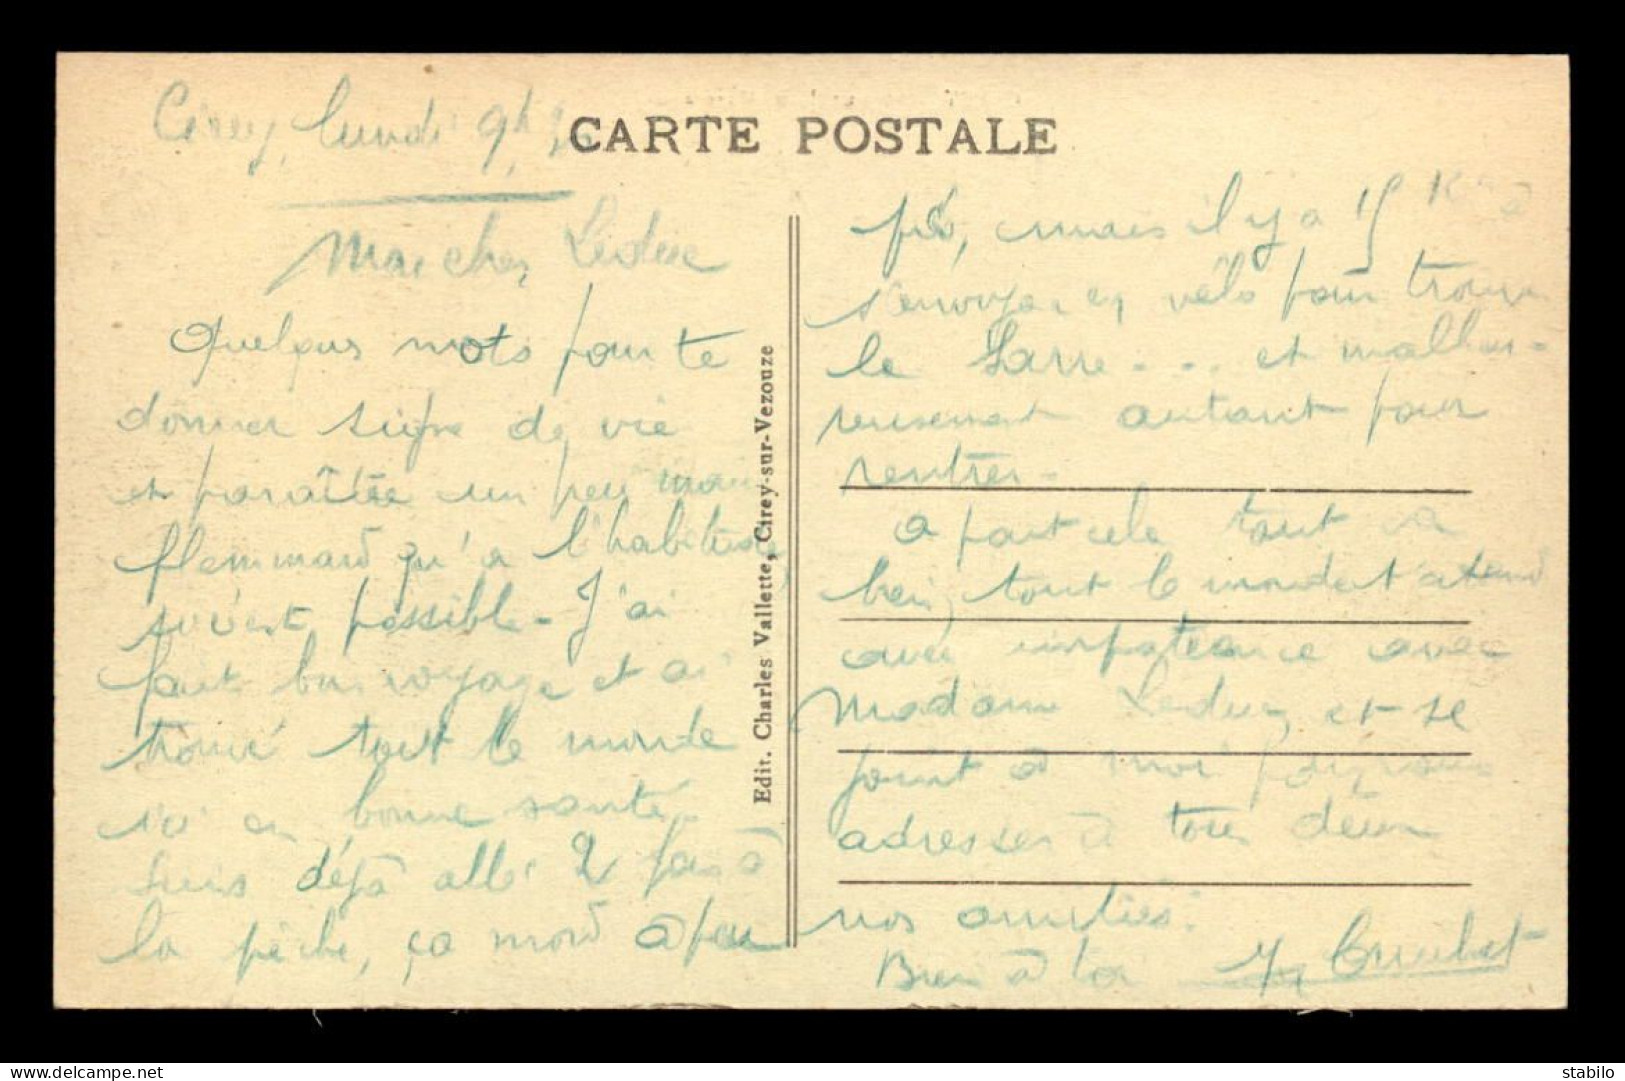 CARTE POSTALE
Cirey, lundi 9h
Mon cher Leduc
Quelques mots pour te
donner signe de vie
et paraître un peu moins
flemmard qu'à l'habitude
si c'est possible - J'ai
fait bon voyage et ai
trouvé tout le monde
ici en bonne santé.
Suis déjà allé 2 fois à
la pêche, ça mord à peu
Edit. Charles Vallette, Cirey-sur-Vezouze
près, mais il y a 15 K à
s'envoyer en vélo pour trouver
la Sarre - . . et malheu-
reusement autant pour
rentrer -
A part cela tout va
bien, tout le monde t'attend
avec impatience avec
Madame Leduc, et se
joint à moi pour vous
adresser à tous deux
nos amitiés.
Bien à toi